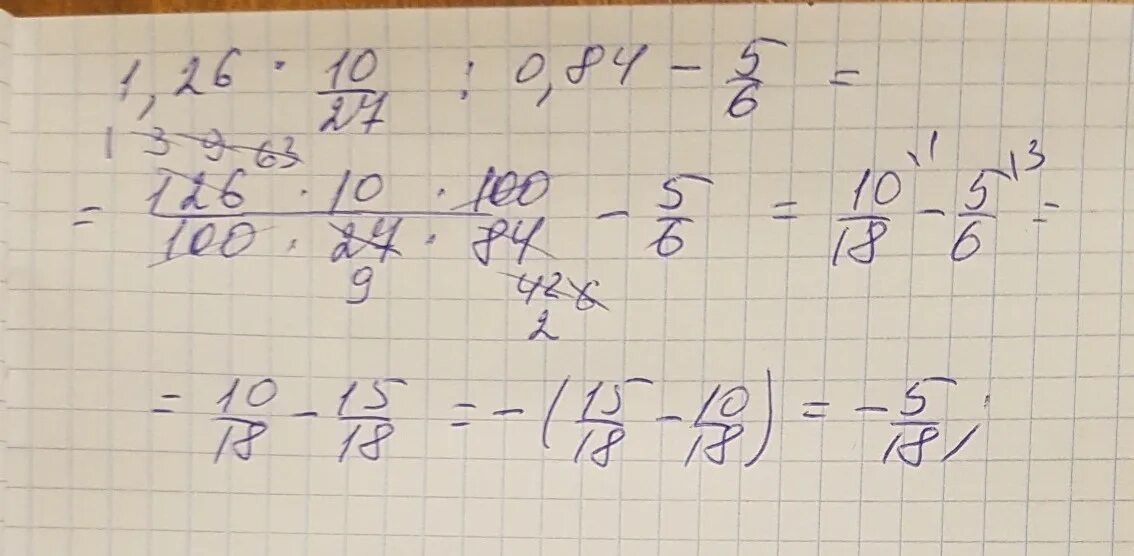 1,26 · 10/27 : 0,84 - 5/6 =
1 3 9 63
= 126 · 10 · 100 / 100 · 27 · 84 - 5/6 = 10/18 \1 - 5/6 \3 =
9 42 6
2
= 10/18 - 15/18 = - (15/18 - 10/18) = - 5/18 ;